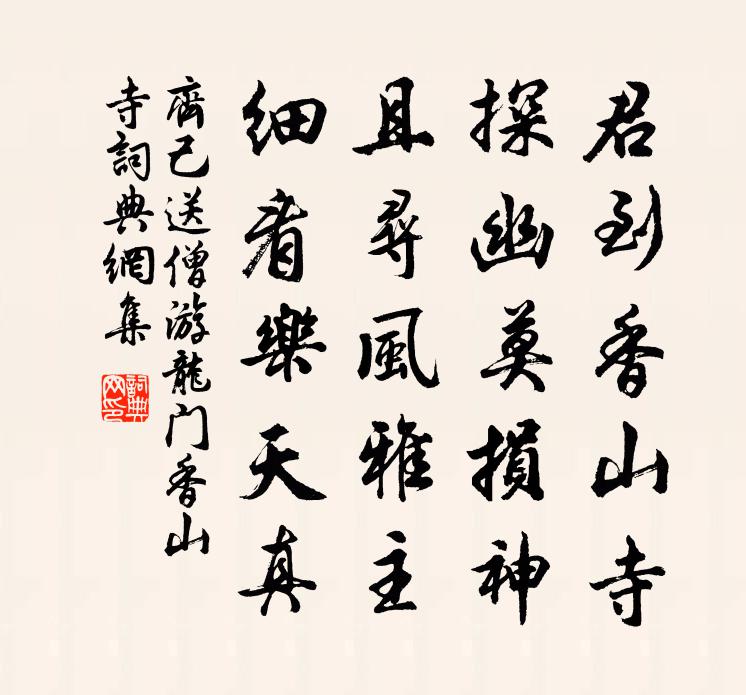 君到香山寺
探幽莫損神
且尋風雅主
細看樂天真
齊己送僧游龍门香山
寺詞典網集
詞典网印